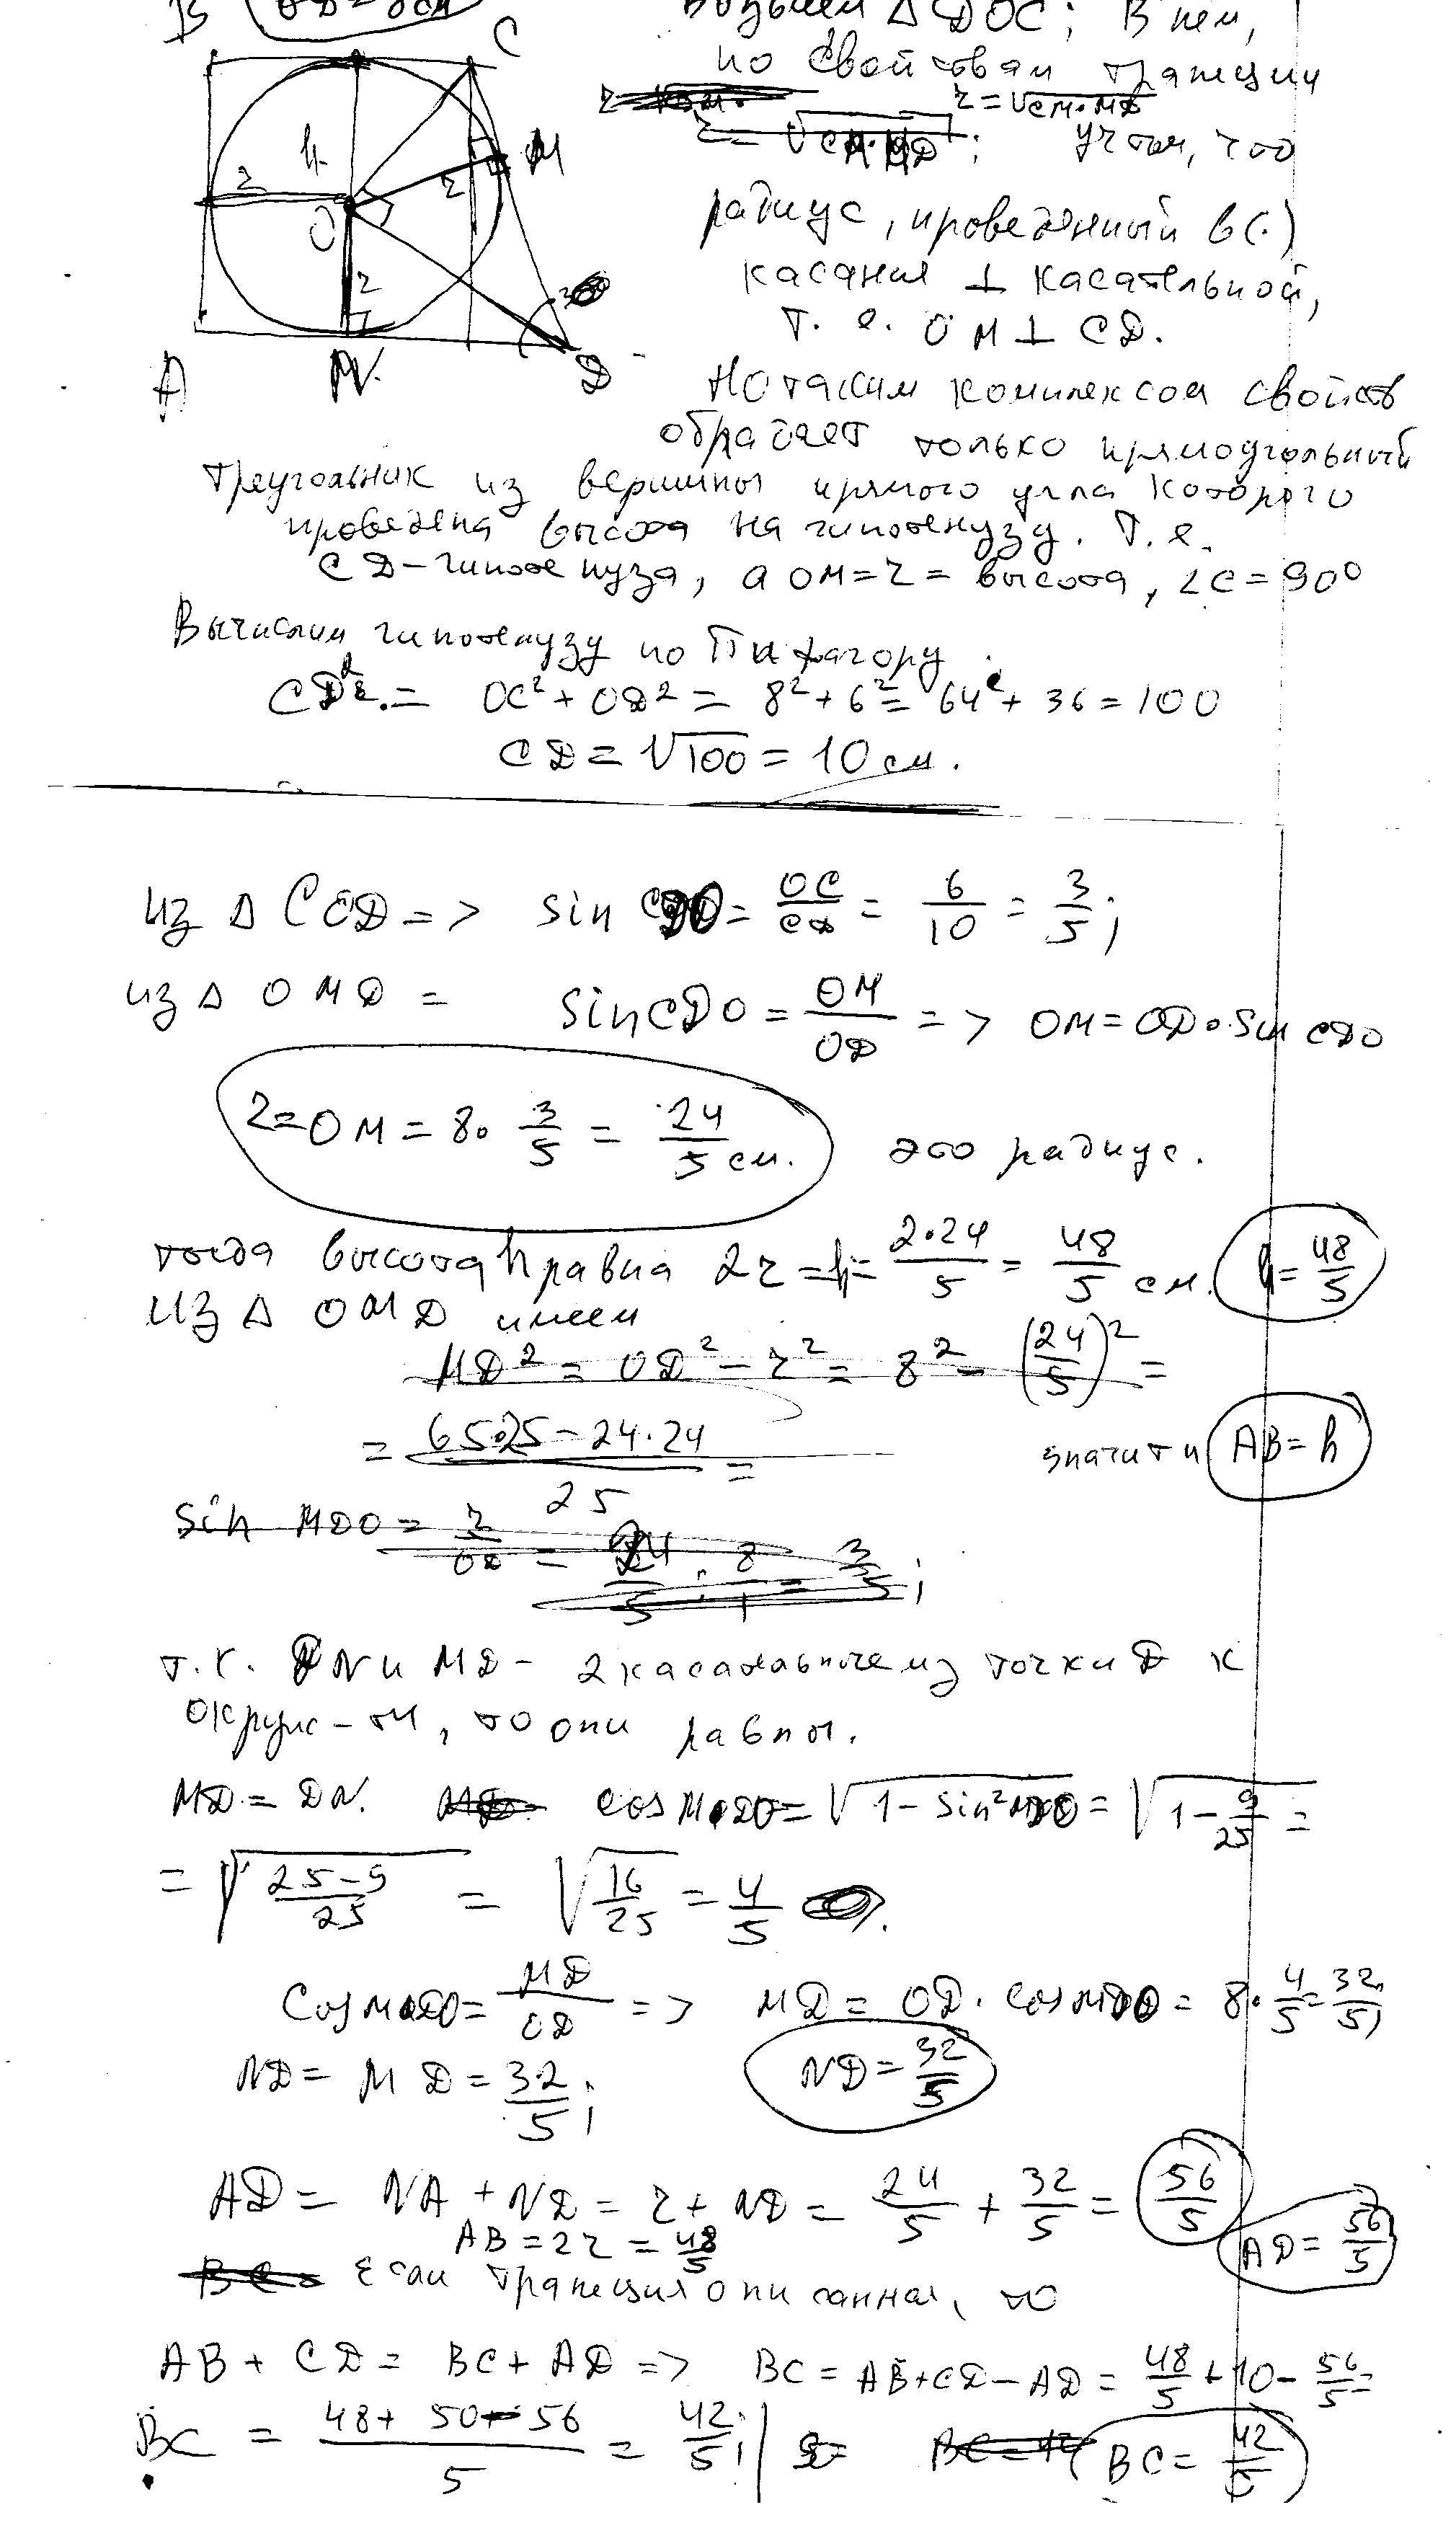 B OD = 8см
Возьмем Δ DOC; В нем,
C
по свойствам трапеции
r = √CM·MD
r = √CM·MD; учтем, что
h M
r r
O
радиус, проведенный в (·)
r
касания ⊥ касательной,
т. е. OM ⊥ CD.
A N. D
Но таким комплексом свойств
обладает только прямоугольный
треугольник из вершины прямого угла которого
проведена высота на гипотенузу. Т. е.
CD - гипотенуза, а OM = r = высота, ∠C = 90°
Вычислим гипотенузу по Пифагору.
CD² = OC² + OD² = 8² + 6² = 64 + 36 = 100
CD = √100 = 10 см.
из Δ COD => sin CDO = OC/CD = 6/10 = 3/5;
из Δ OMD = sin CDO = OM/OD => OM = OD · sin CDO
r = OM = 8 · 3/5 = 24/5 см. это радиус.
тогда высота h равна 2r = h = 2·24/5 = 48/5 см. h = 48/5
из Δ OMD имеем
MD² = OD² - r² = 8² - (24/5)² =
= 65·25 - 24·24/25 =
значит и AB = h
sin MDO = r/OD = 24/5 : 8/1 = 3/5;
т. к. DN и MD - 2 касательные из точки D к
окруж-ти, то они равны.
MD = DN. MD = cos MDO = √1 - sin² MDO = √1 - 9/25 =
= √25-9/25 = √16/25 = 4/5
cos MDO = MD/OD => MD = OD · cos MDO = 8 · 4/5 = 32/5;
ND = MD = 32/5; ND = 32/5
AD = NA + ND = r + ND = 24/5 + 32/5 = 56/5
AB = 2r = 48/5 AD = 56/5
BC = Если трапеция описанная, то
AB + CD = BC + AD => BC = AB + CD - AD = 48/5 + 10 - 56/5 =
BC = 48 + 50 - 56/5 = 42/5; BC = 42/5